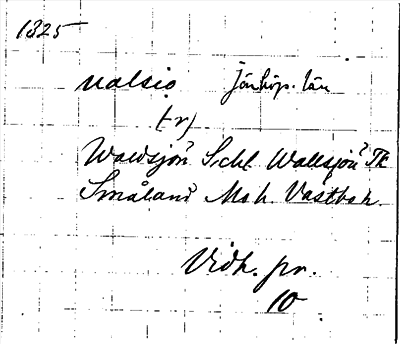 1825
valsio Jönköp. län
(-r)
Waldsjön Schl Wallsjön TK
Småland Mo h. Västbo h.
Vidh. pr.
10